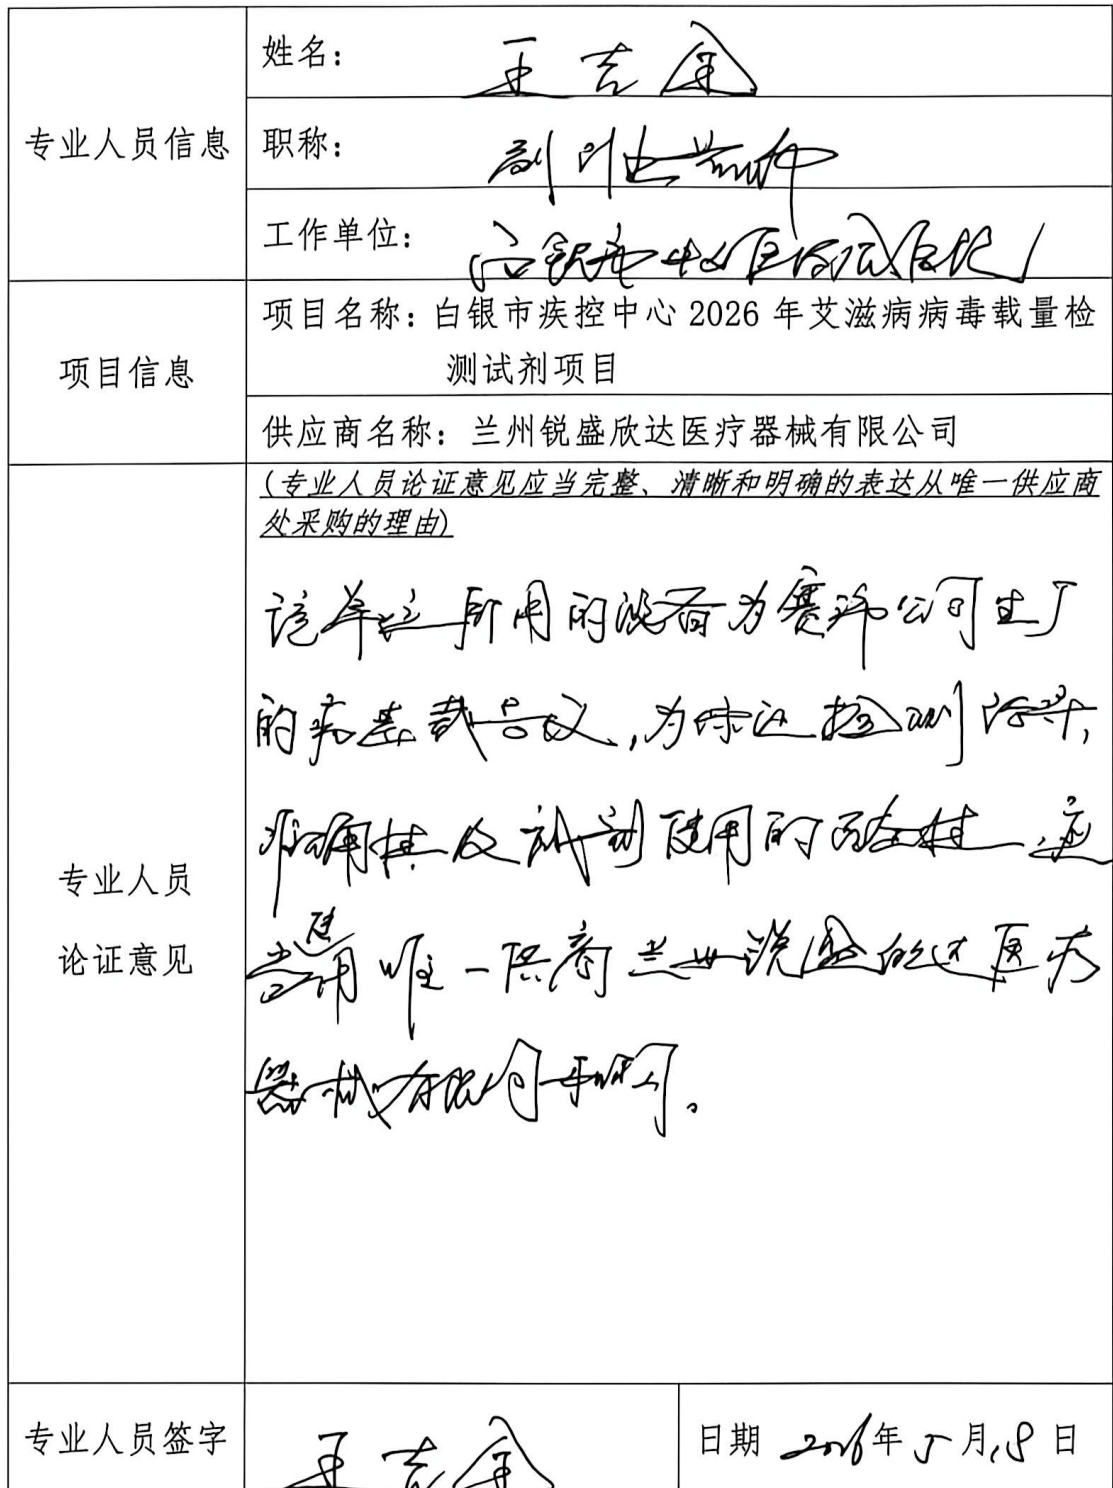 专业人员信息
姓名：王吉全
职称：副
工作单位：白银市中西医结合医院
项目信息
项目名称：白银市疾控中心2026年艾滋病病毒载量检
测试剂项目
供应商名称：兰州锐盛欣达医疗器械有限公司
专业人员
论证意见
(专业人员论证意见应当完整、清晰和明确的表达从唯一供应商
处采购的理由)
该单位所用的设备为赛沛公司生产
的病毒载量仪，为保证检测结果，
准确性及试剂使用的配套性，应
当使用唯一供商兰州锐盛欣达医疗
器械有限公司
专业人员签字
王吉全
日期 2026年5月18日